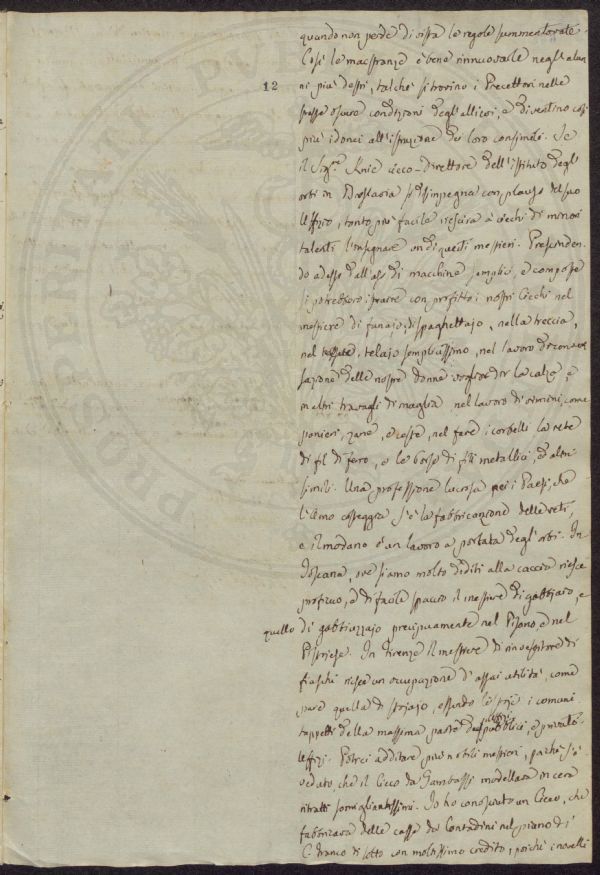 quando non perde di vista le regole summentovate.
Così le maestranze è bene rinnuovarle negl'alun
12
ni più destri, talchè si trovino i Precettori nelle
stesse oscure condizioni degl'allievi, e diventino così
più idonei all'istruzione de' loro consimili. Se
il Sigr. Knie cieco-direttore dell'istituto degl'
orbi in Breslavia si disimpegna con plauso del suo
Uffizio, tanto più facile riescirà a' ciechi di minori
talenti l'insegnare un di questi mestieri. Prescinden-
do adesso dall'uso di macchine semplici, e composte
si potrebbero istruire con profitto i nostri Ciechi nel
mestiere di funajo, di spaghettajo, nella treccia,
nel telajo semplicissimo, nel lavoro di
delle nostre donne la calza, e
in altri travagli di maglia nel lavoro di vimini, come
panieri, zane, e ceste, nel fare i corbelli la rete
di fil di ferro, e le borse di fili metallici, ed altri
simili. Una professione lucrosa pei i Paesi, che
l'Arno costeggia s'è la fabbricazione delle reti,
e il modano è un lavoro a portata degl'orbi. In
Toscana, ove siamo molto dediti alla caccia riesce
proficuo, e di facile spaccio il mestiere di gabbiaio, e
quello di gabbiuzzajo precipuamente nel Pisano e nel
Pesciese. In Firenze il mestiere di rivestitore di
fiaschi riesce un occupazione d'assai utilità, come
pure quella di stojajo, essendo le stoje i comuni
tappeti della massima parte de' pubblici, e privati
Uffizj. Potrei additare più nobili mestieri, poichè s'è
veduto che il Cieco da Gambassi modellava in cera
ritratti somigliantissimi. Io ho conosciuto un Cieco, che
fabbricava delle casse de' Contadini nel piano di
C. franco di sotto con moltissimo credito, poichè i novelli